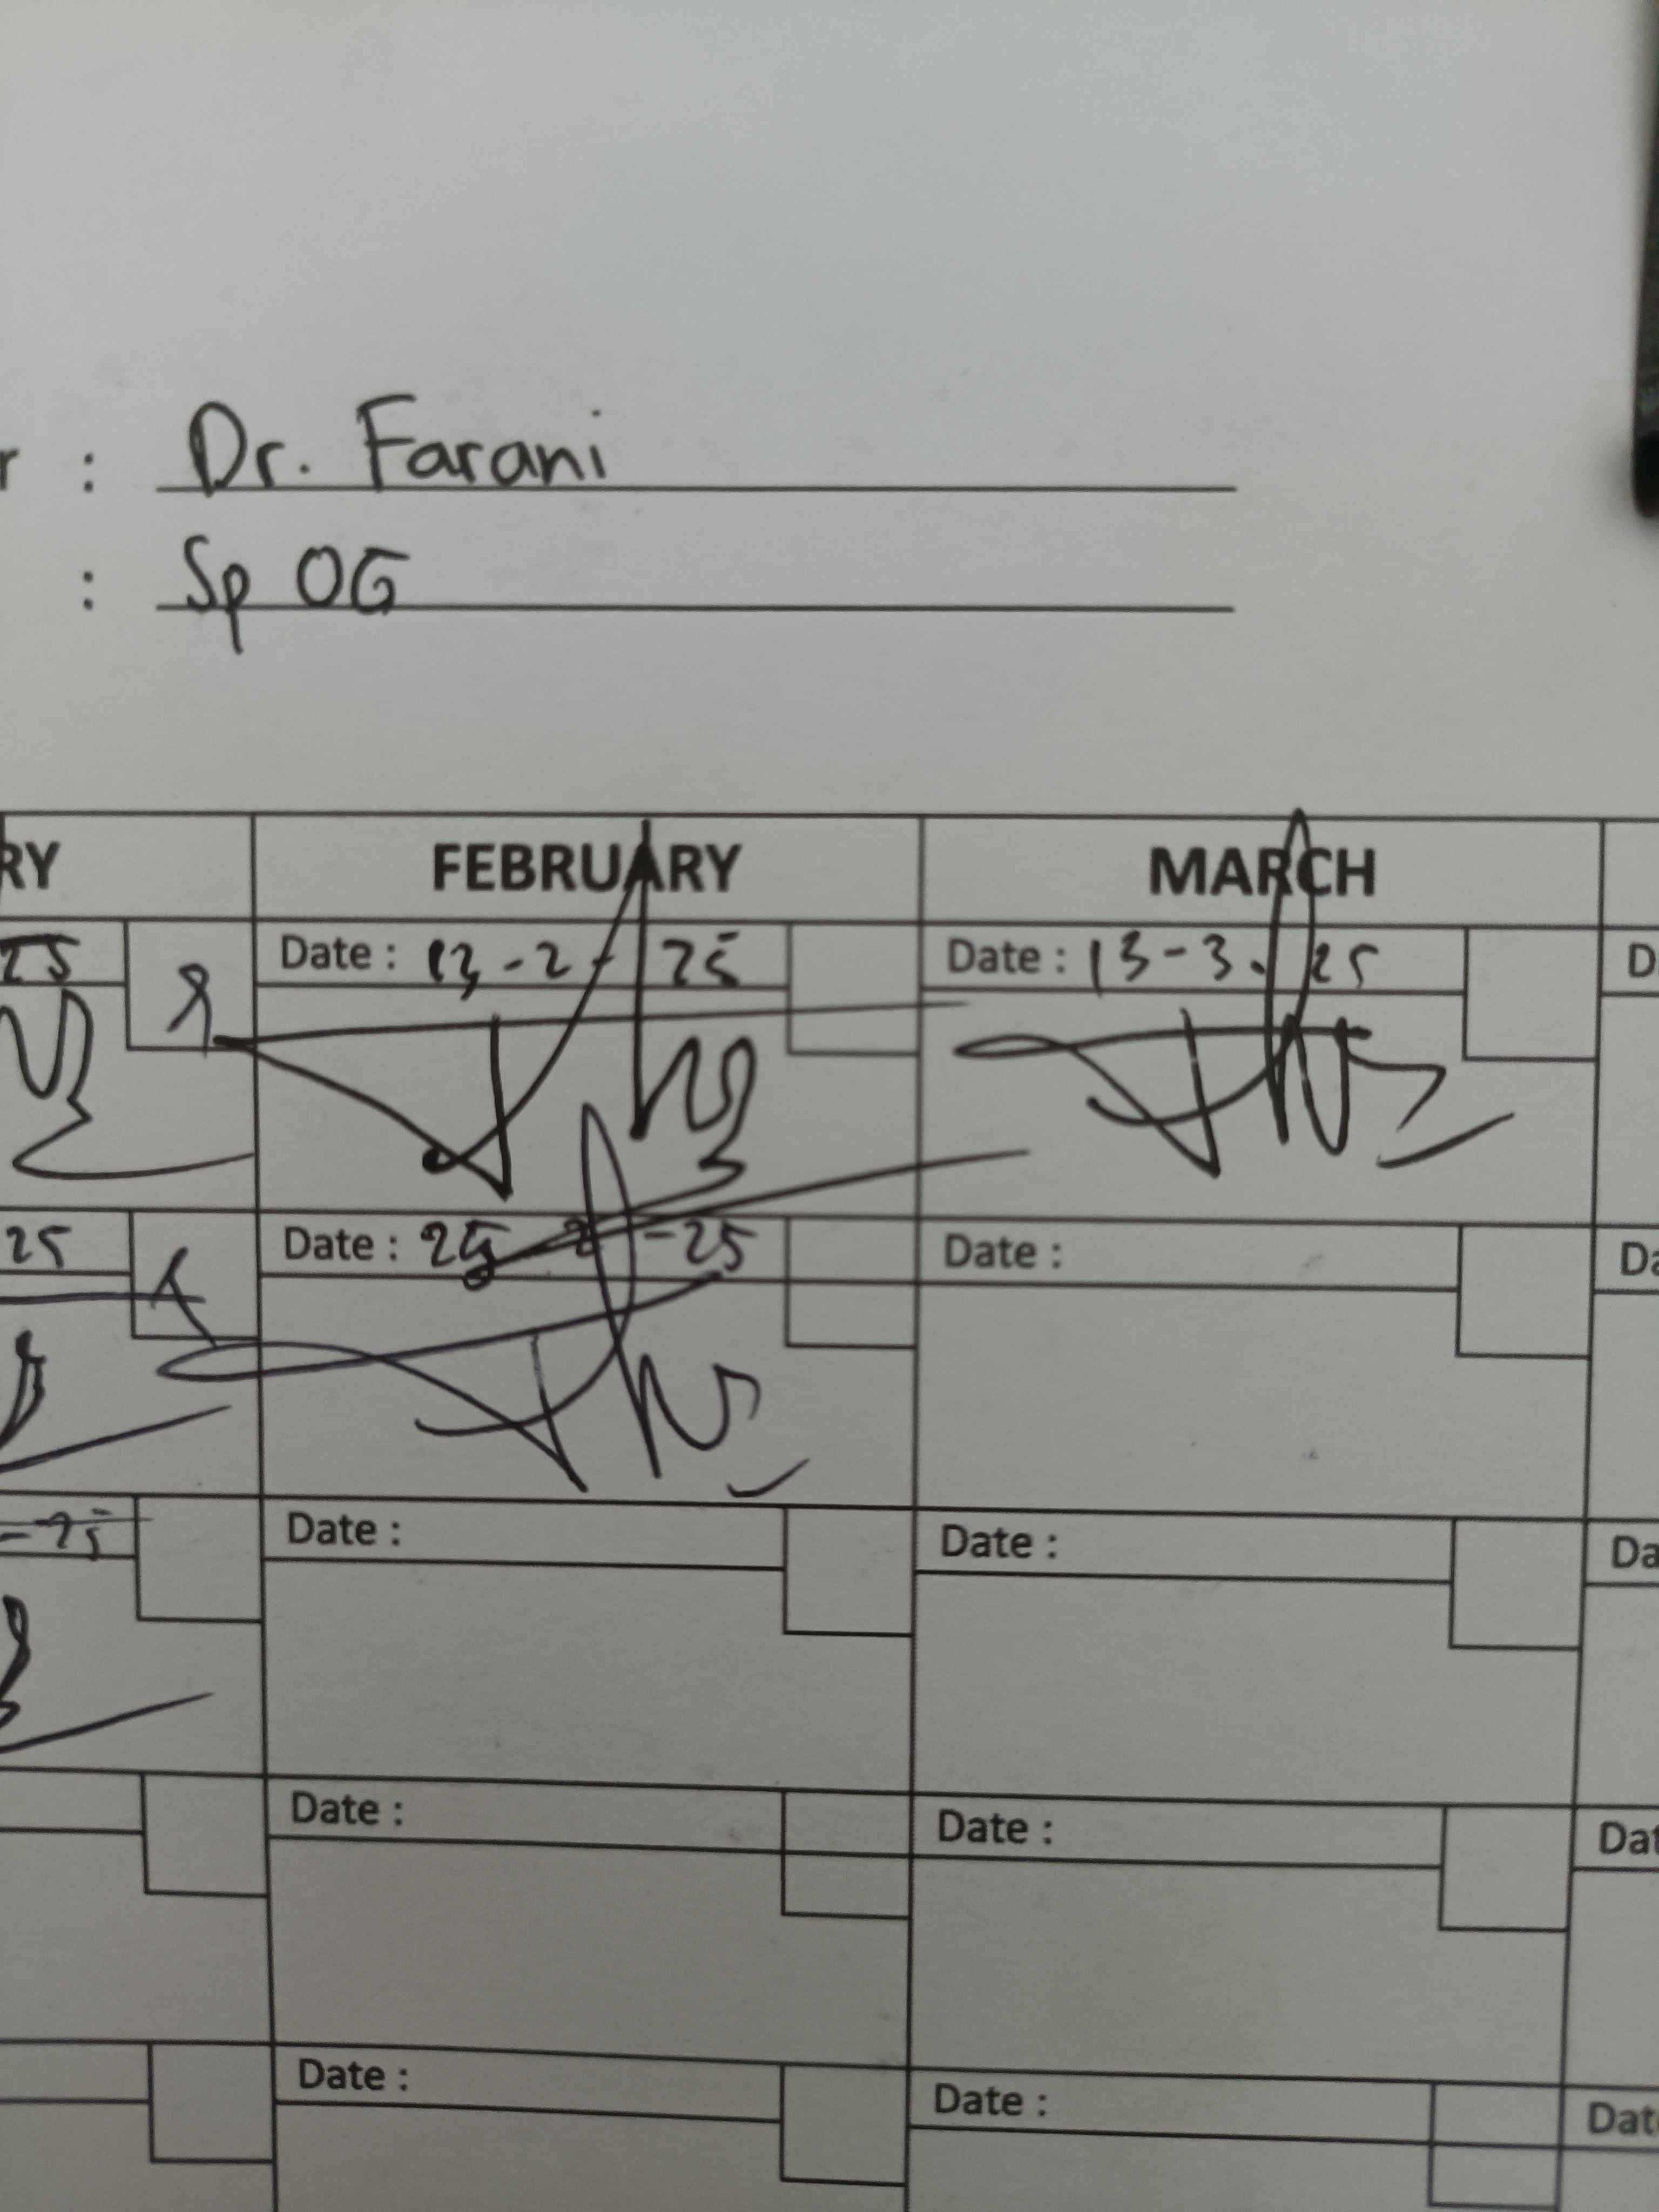 r : Dr. Farani
: Sp OG
RY FEBRUARY MARCH
25 Date : 13-2-25 Date : 13-3-25 D
25 Date : 25 2-25 Date : Da
-25 Date : Date : Da
Date : Date : Dat
Date : Date : Dat